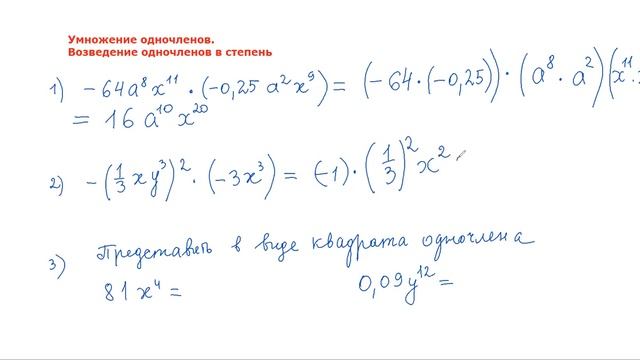 Умножение одночленов.
Возведение одночленов в степень
1) -64a⁸x¹¹ · (-0,25 a²x⁹) = (-64·(-0,25))·(a⁸·a²)(x¹¹·
= 16 a¹⁰ x²⁰
2) -(1/3 xy³)² · (-3x³) = (-1)·(1/3)² x²
3) Представить в виде квадрата одночлена
81x⁴ = 0,09y¹² =